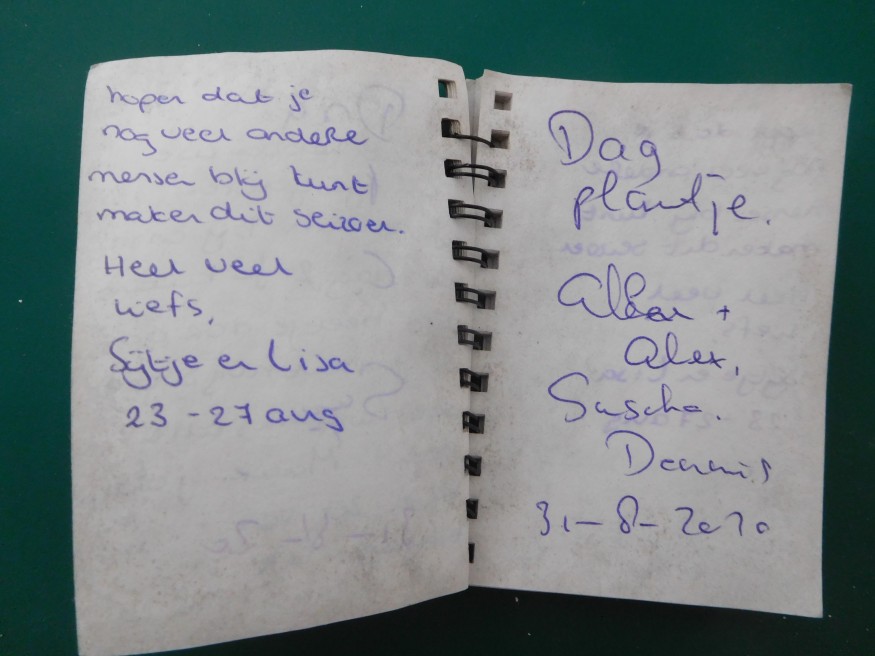 hopen dat je
nog veel andere
mensen blij kunt
maken dit seizoen.
Heel veel
liefs,
Sijtje en Lisa
23 - 27 aug
Dag
plantje.
+
Alex,
Sascha.
Dennis
31-8-2020